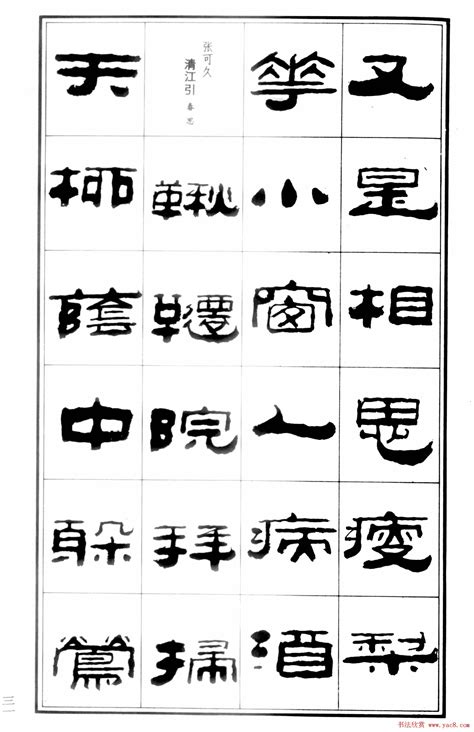 又是相思瘦梨
華小窗人病酒
张可久
清江引 春思
鞦韆院拜掃
天柳蔭中躲鶯
三一
书法欣赏 www.yac8.com